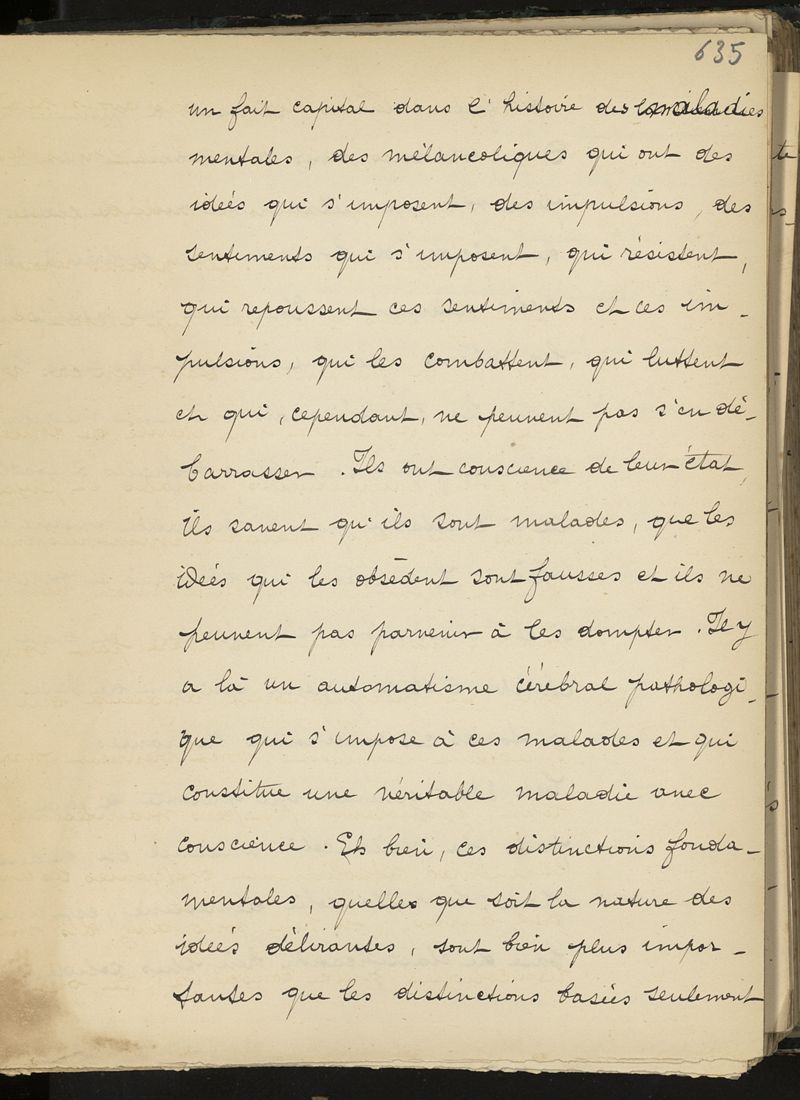 635
un fait capital dans l'histoire des maladies
mentales, des mélancoliques qui ont des
idées qui s'imposent, des impulsions, des
sentiments qui s'imposent, qui résistent,
qui repoussent ces sentiments et ces im-
pulsions, qui les combattent, qui luttent
et qui, cependant, ne peuvent pas s'en dé-
barrasser. Ils ont conscience de leur état,
ils savent qu'ils sont malades, que les
idées qui les obsèdent sont fausses et ils ne
peuvent pas parvenir à les dompter. Il y
a là un automatisme cérébral pathologi-
que qui s'impose à ces malades et qui
constitue une véritable maladie avec
conscience. Eh bien, ces distinctions fonda-
mentales, quelles que soit la nature des
idées délirantes, sont bien plus impor-
tantes que les distinctions basées seulement